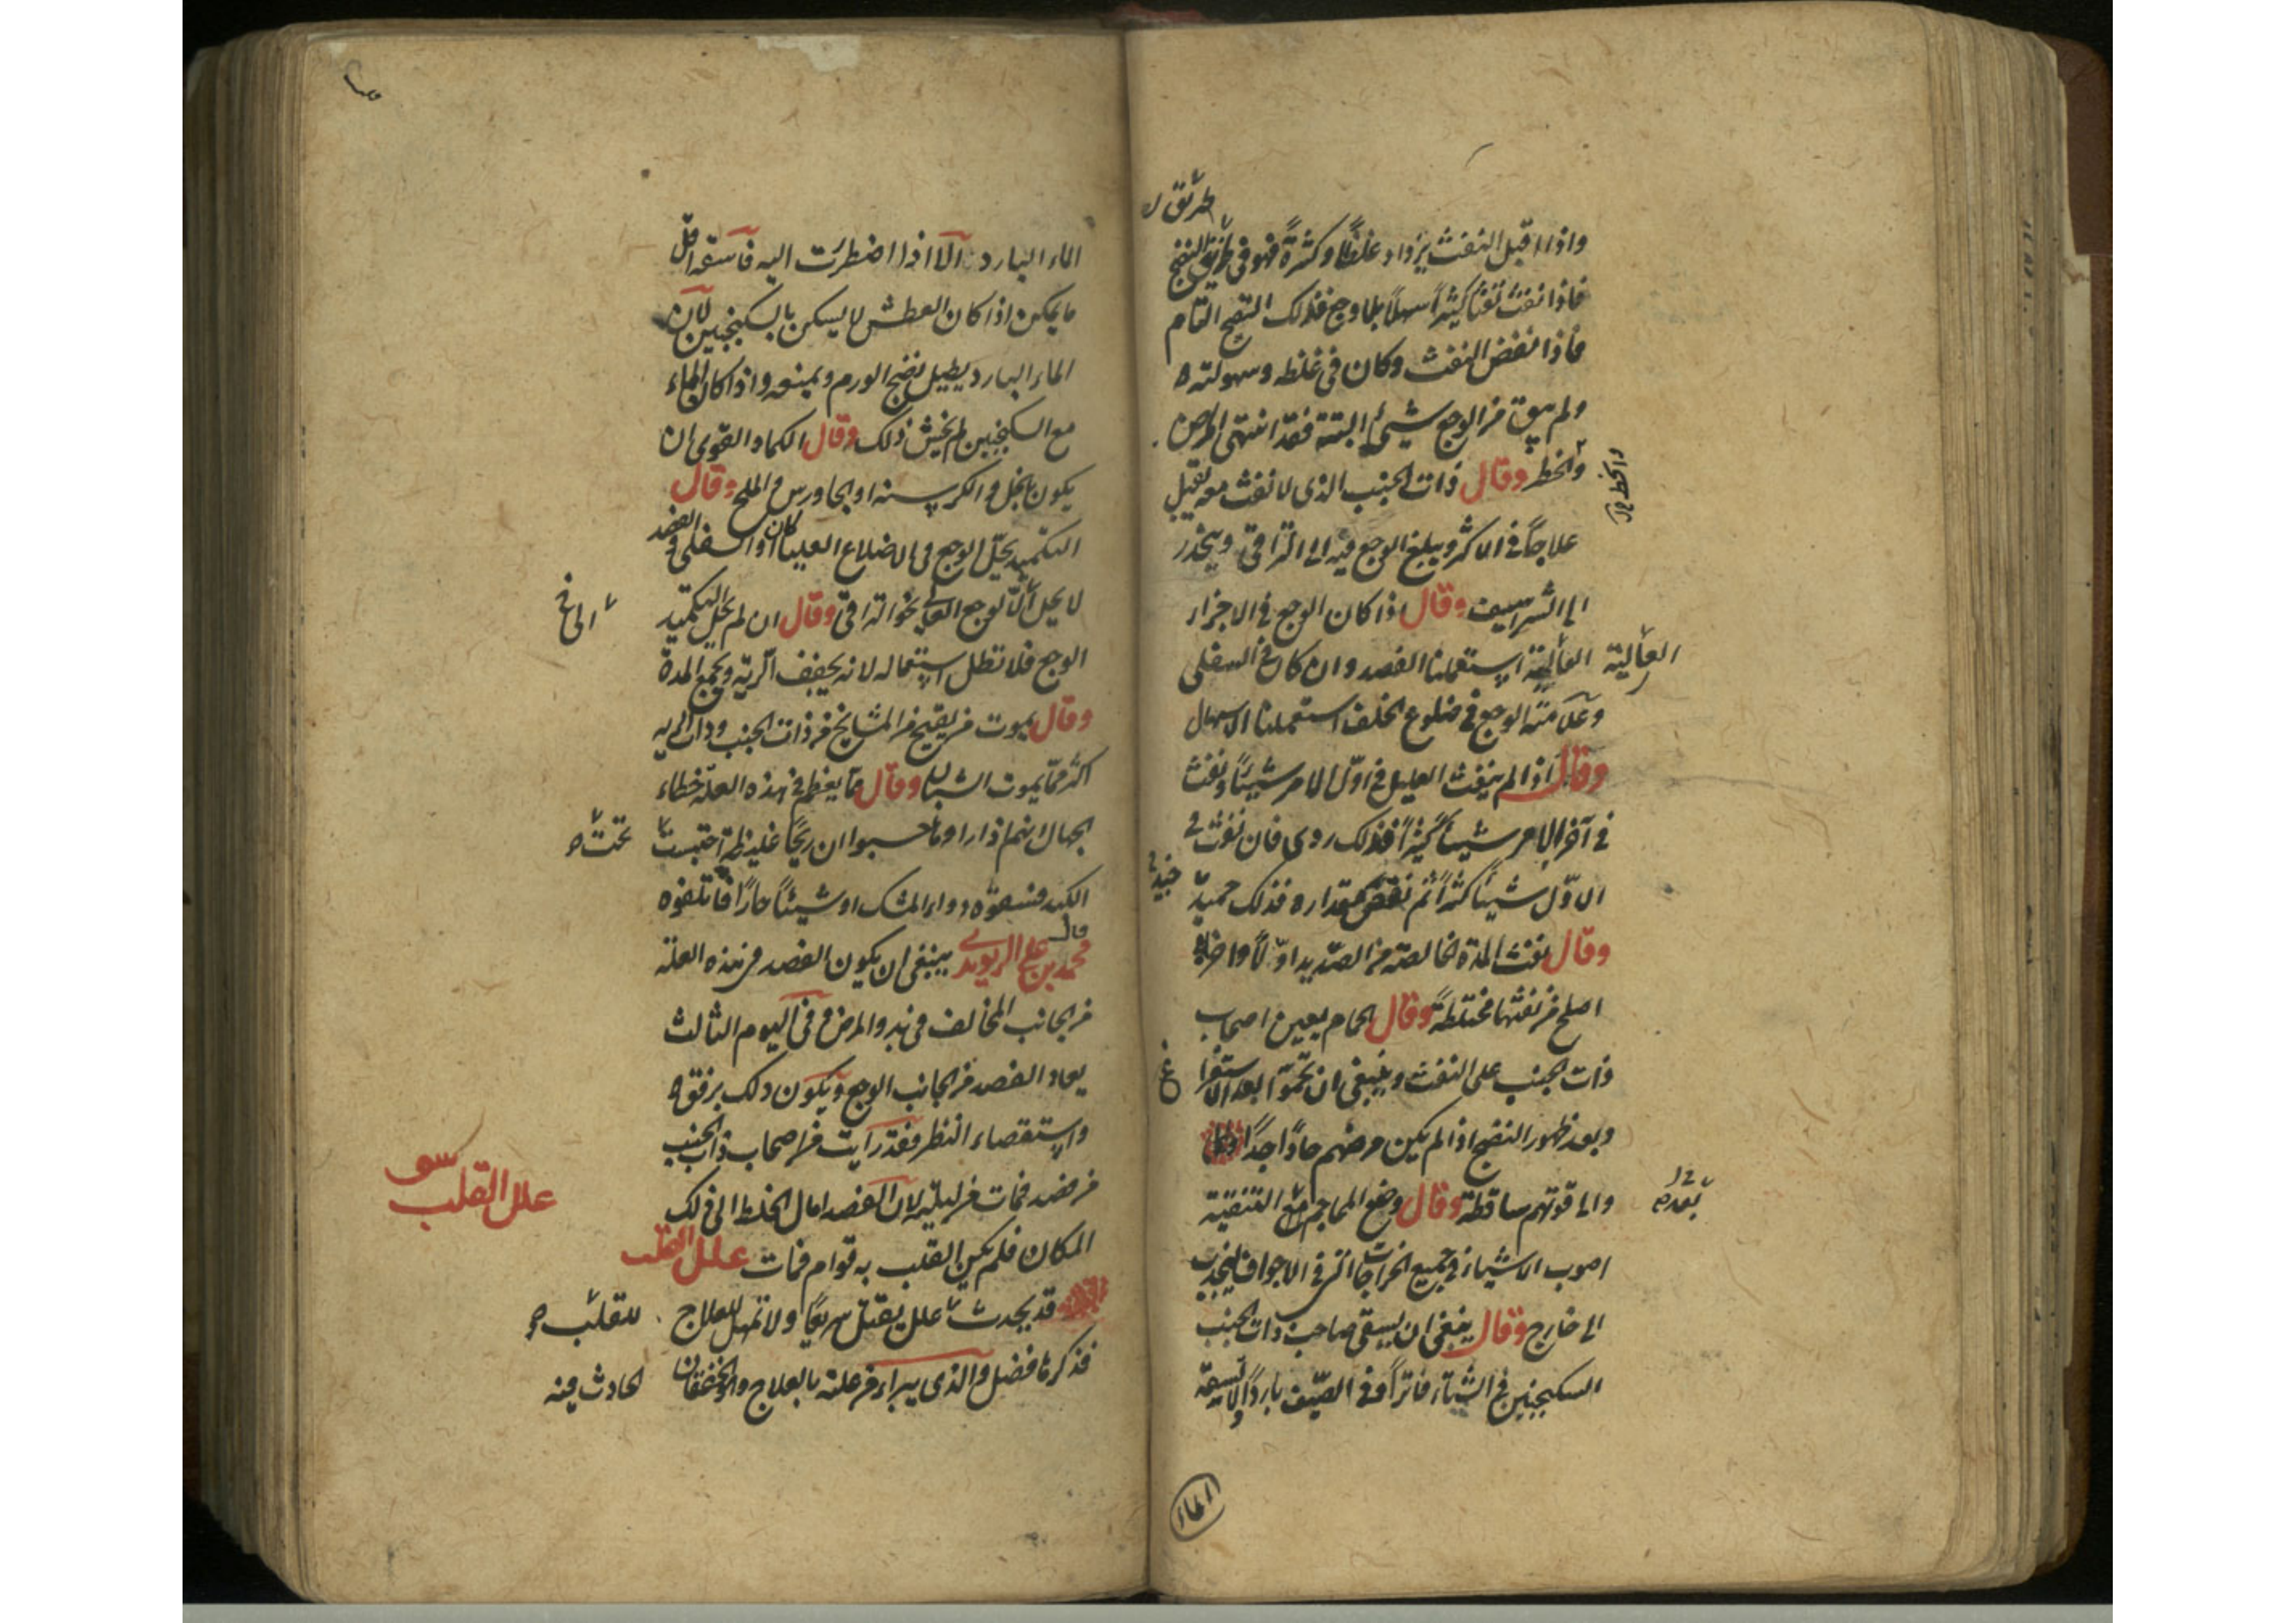 واذا اقبل النفث يزداد غلظا وكثرة فهو فى طريق النضج
فاذا نفث نفثا كثيرا سهلا بلا وجع فذلك النضج التام
فاذا نقض النفث وكان فى غلظه وسهولته
ولم يبق من الوجع شىء البتة فقد انتهى المرض
والخطر وقال ذات الجنب الذى لا نفث معه ثقيل
علاجا فى الاكثر ويبلغ الوجع فيه الى التراقى وينحدر
الى الشراسيف وقال اذا كان الوجع فى الاجزاء
العالية استعملنا الفصد وان كان فى السفلى
وعلامته الوجع فى ضلوع الخلف استعملنا الاسهال
وقال اذا لم ينفث العليل فى اول الامر شيئا ونفث
فى آخر الامر شيئا كثيرا فذلك ردى فان نفث فى
الاول شيئا كثيرا ثم نقص مقداره فذلك حميد
وقال نفث المدة الخالصة من الصديد اولا واخرا
اصلح من نفثها مختلطة وقال الحمام يعين اصحاب
ذات الجنب على النفث وينبغى ان بعد الاستفرا
وبعد ظهور النضج اذا لم يكن مرضهم حادا جدا
والا قوتهم ساقطة وقال وضع المحاجم مع التنقية
اصوب الاشياء فى جميع الخراجات التى فى الاجواف لينجذب
الى خارج وقال ينبغى ان يسقى صاحب ذات الجنب
السكنجبين فى الشتاء فاترا وفى الصيف باردا ولا تسقه
طريق
والخطر
العالية
غ
بعد
الماء
الماء البارد الا اذا اضطررت اليه فاسقه اقل
ما يمكن اذا كان العطش لا يسكن بالسكنجبين لان
الماء البارد يطيل نضج الورم ويمنعه واذا كان الماء
مع السكنجبين لم يخش ذلك وقال الكماد القوى ان
يكون بالخل والكرسنة او الجاورس والملح وقال
التكميد يحل الوجع فى الاضلاع العليا كان او السفلى والفصد
لا يحل الا الوجع العالى نحو التراقى وقال ان لم يحل التكميد
الوجع فلا تطل استعماله لانه يجفف الرية ويجمع المدة
وقال يموت من يقيح من المشايخ من ذات الجنب وذات الرية
اكثر مما يموت الشبان وقال مما يعظم فى هذه العلة خطاء
الجهال انهم اذا راوها حسبوا ان ريحا غليظة احتبست
الكبد فسقوه دواء المسك او شيئا حارا فاتلفوه
قال محمد بن على الريوندى ينبغى ان يكون الفصد فى هذه العلة
من الجانب المخالف فى بدو المرض وفى اليوم الثالث
يعاد الفصد من الجانب الوجع ويكون ذلك برفق
واستقصاء النظر فقد رايت من اصحاب ذات الجنب
من فصد فمات من ليلته لان الفصد امال الخلط الى ذلك
المكان فلم يكن القلب به قوام فمات علل القلب
قد يحدث علل يقتل سريعا ولا تمهل للعلاج
فذكرها فضل والذى يبراء من علته بالعلاج والخفقان
الى غ
تحت
علل القلب
للقلب
الحادث فيه